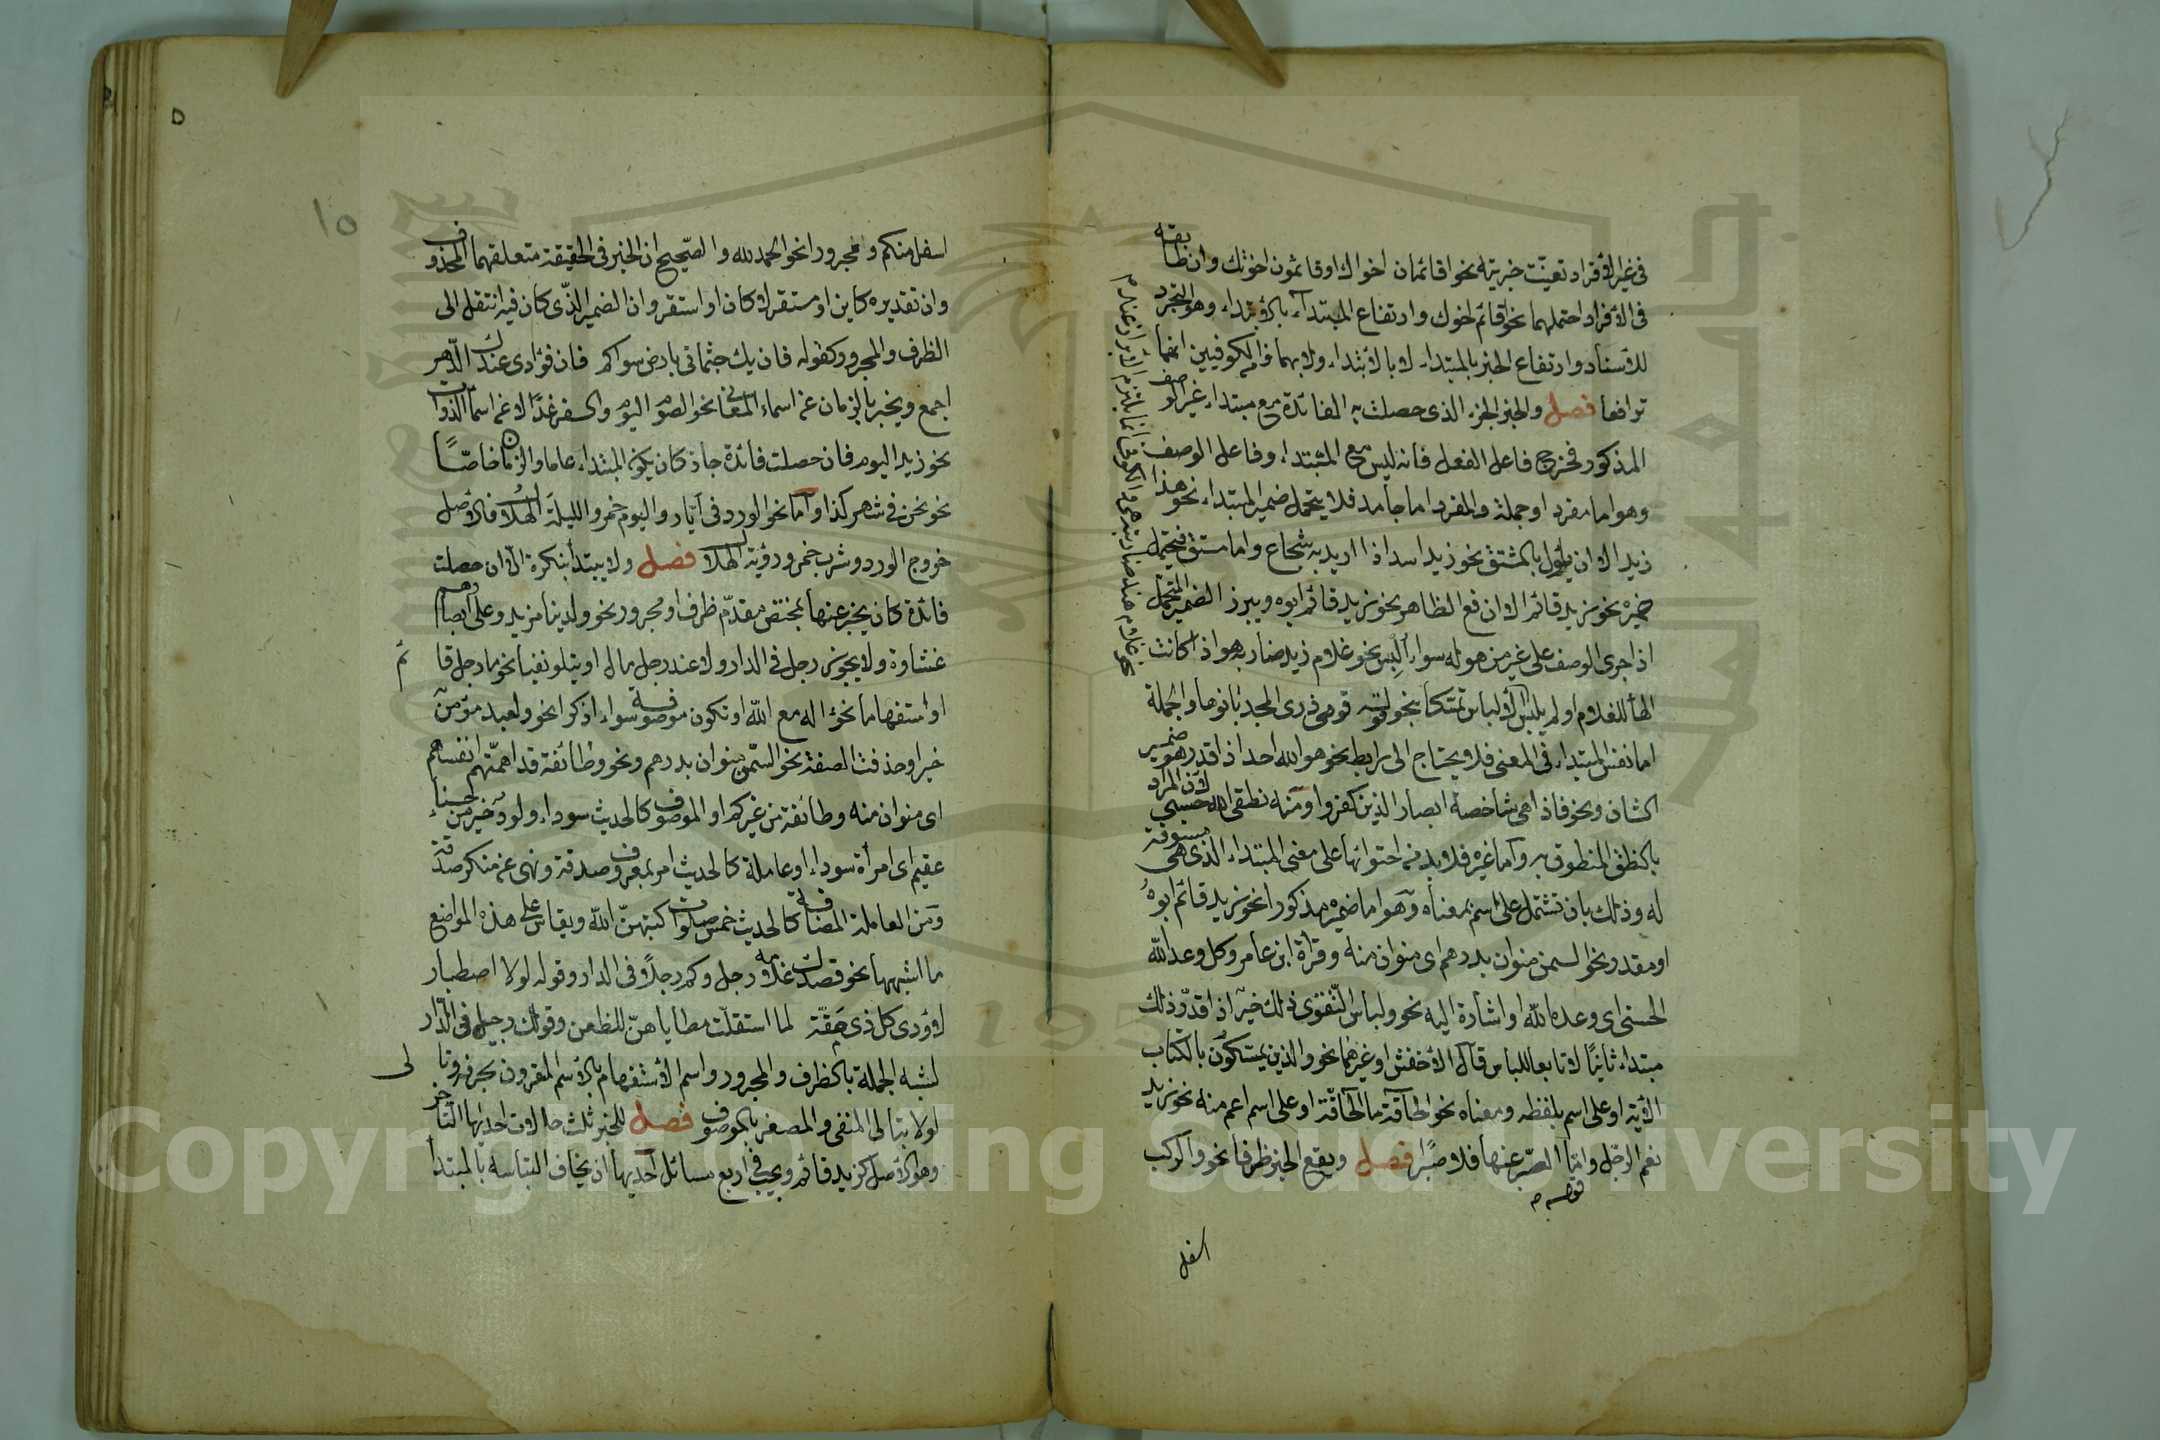 في غير الافراد تعينت خبريته نحو اقائمان اخواك او قائمون اخوتك وان طابقه
في الافراد احتملهما نحو اقائم اخوك وارتفاع المبتداء بالابتداء وهو التجرد
للاسناد وارتفاع الخبر بالمبتداء لا بالابتداء ولا بهما وللكوفيين انهما
ترافعا فصل والخبر الجزء الذي حصلت به الفائدة مع مبتداء غير الوصف
المذكور فخرج فاعل الفعل فانه ليس مع المبتداء وفاعل الوصف
وهو اما مفرد او جملة والمفرد اما جامد فلا يتحمل ضمير المبتداء نحو هذا
زيد الا ان يأول بالمشتق نحو زيد اسد اذا اريد به شجاع واما مشتق فيتحمل
ضميره نحو زيد قائم الا ان رفع الظاهر نحو زيد قائم ابوه ويبرز الضمير المتحمل
اذا جرى الوصف على غير من هو له سواء البس نحو غلام زيد ضاربه هو اذا كانت
الهأ للغلام او لم يلبس نحو قوله قومي ذرى المجد بانوها والجملة
اما نفس المبتداء في المعنى فلا يحتاج الى رابط نحو هو الله احد اذا قدر هو ضمير
الشان ونحو فاذا هي شاخصة ابصار الذين كفروا ومنه نطقي الله حسبي لان المراد
بالنطق المنطوق به واما غيره فلا بد من احتوائها على معنى المبتداء الذي هي مسوقة
له وذلك بان تشتمل على اسم بمعناه وهو اما ضميره مذكورا نحو زيد قائم ابوه
او مقدر نحو السمن منوان بدرهم اي منوان منه وقرأة ابن عامر وكل وعد الله
الحسنى اي وعده الله او اشارة اليه نحو ولباس التقوى ذلك خير اذا قدر ذلك
مبتداء ثانيا لا تابعا للباس قال الاخفش او غيرهما نحو والذين يمسكون بالكتاب
الاية او على اسم بلفظه ومعناه نحو الحاقة ما الحاقة او على اسم اعم منه نحو زيد
نعم الرجل واما الصبر عنها فلا صبرا فصل ويقع الخبر ظرفا نحو والركب
قوله
اسفل
٥
١٥
اسفل منكم ومجرورا نحو الحمد لله والصحيح ان الخبر في الحقيقة متعلقهما المحذوف
وان تقديره كاين او مستقر لا كان او استقر وان الضمير الذي كان فيه انتقل الى
الظرف والمجرور كقوله فان يك جثماني بارض سواكم فان فؤادي عندك الدهر
اجمع ويخبر بالزمان عن اسماء المعاني نحو الصوم اليوم والسفر غدا لا عن اسما الذوات
نحو زيد اليوم فان حصلت فائدة جاز كان يكون المبتداء عاما والزمان خاصا
نحو نحن في شهر كذا واما نحو الورد في ايار واليوم خمر والليلة الهلال فالاصل
خروج الورد وشرب خمر ورؤية الهلال فصل ولا يبتدأ بنكرة الا ان حصلت
فائدة كان يخبر عنها بمختص مقدم ظرف او مجرور نحو ولدينا مزيد وعلى ابصارهم
غشاوة ولا يجوز رجل في الدار ولا عند رجل مال او يتلو نفيا نحو ما رجل قائم
او استفهاما نحو أاله مع الله او تكون موصوفة سواء اذكرا نحو ولعبد مؤمن
خير او حذفت الصفة نحو السمن منوان بدرهم ونحو وطائفة قد اهمتهم انفسهم
اي منوان منه وطائفة من غيركم او الموصوف كالحديث سوداء ولود خير من حسناء
عقيم اي امرأة سوداء او عاملة كالحديث امر بمعروف صدقة ونهي عن منكر صدقة
ومن العاملة المضافة كالحديث خمس صلوات كتبهن الله ويقاس على هذه المواضع
ما اشبهها نحو قصدك غلامه رجل وكم رجلا في الدار وقوله لولا اصطبار
لاودى كل ذي مقة لما استقلت مطاياهن للظعن وقولك رجيل في الدار
لشبه الجملة بالظرف والمجرور واسم الاستفهام بالاسم المقرون بحرفه وتالي
لولا بتالي المنفي والمصغر بالموصوف فصل للخبر ثلث حالات احديها التأخر
وهو الاصل كزيد قائم ويجب في اربع مسائل احديها ان يخاف التباسه بالمبتدا